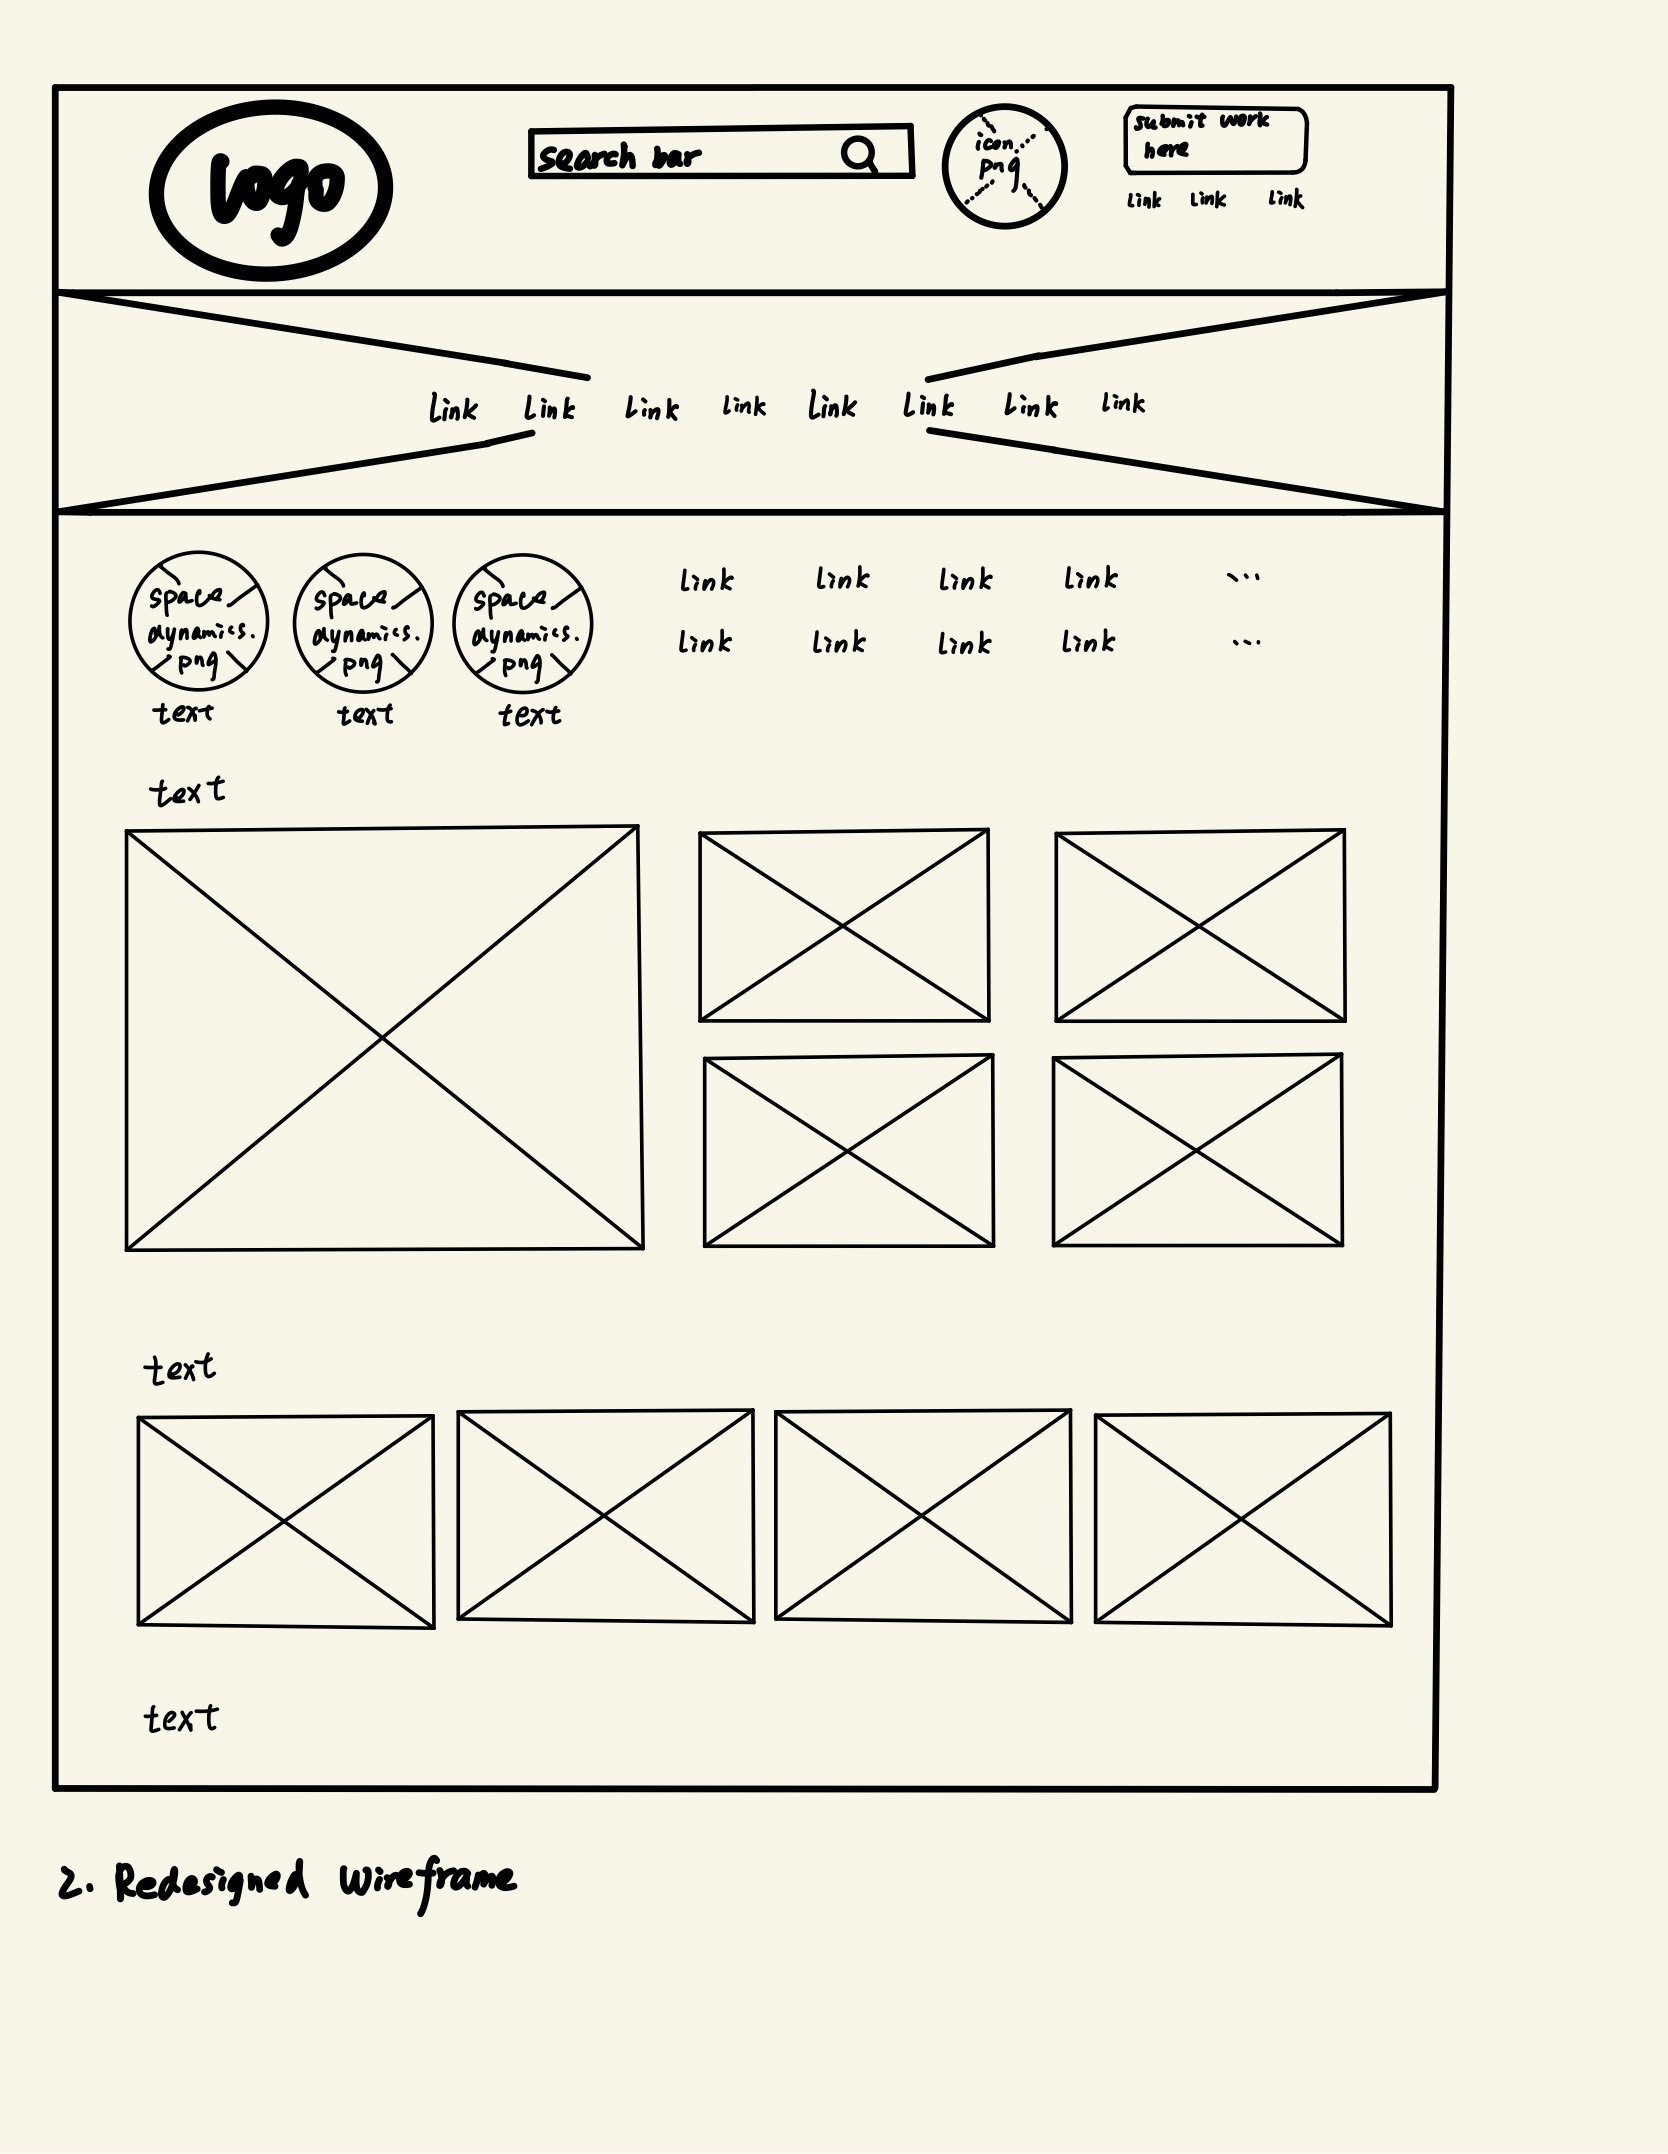 Logo
search bar
icon
png
submit work
here
Link Link Link
Link Link Link Link Link Link Link Link
space
dynamics.
png
text
space
dynamics.
png
text
space
dynamics.
png
text
Link Link Link Link ...
Link Link Link Link ...
text
text
text
2. Redesigned Wireframe